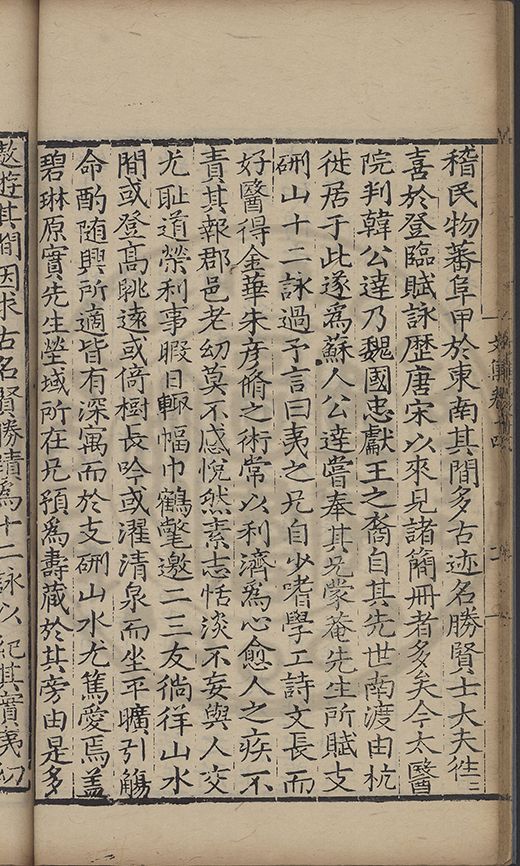 稽民物蕃阜甲於東南其間多古迹名勝賢士大夫徃〻
喜於登臨賦詠歷唐宋以來見諸簡冊者多矣今太醫
院判韓公逹乃魏國忠獻王之裔自其先世南渡由杭
徙居于此遂爲蘇人公逹嘗奉其兄蒙菴先生所賦支
硎山十二詠過予言曰夷之兄自少嗜學工詩文長而
好醫得金華朱彥脩之術常以利濟爲心愈人之疾不
責其報郡邑老幼莫不感悅然素志恬淡不妄與人交
尤耻道榮利事暇日輙幅巾鶴氅邀二三友徜徉山水
間或登高眺遠或倚樹長吟或濯清泉而坐平曠引觴
命酌随興所適皆有深寓而於支硎山水尤篤愛焉蓋
碧琳原實先生塋域所在兄預爲壽藏於其旁由是多
遨遊其間因求古名賢勝蹟爲十二詠以紀其實夷幼